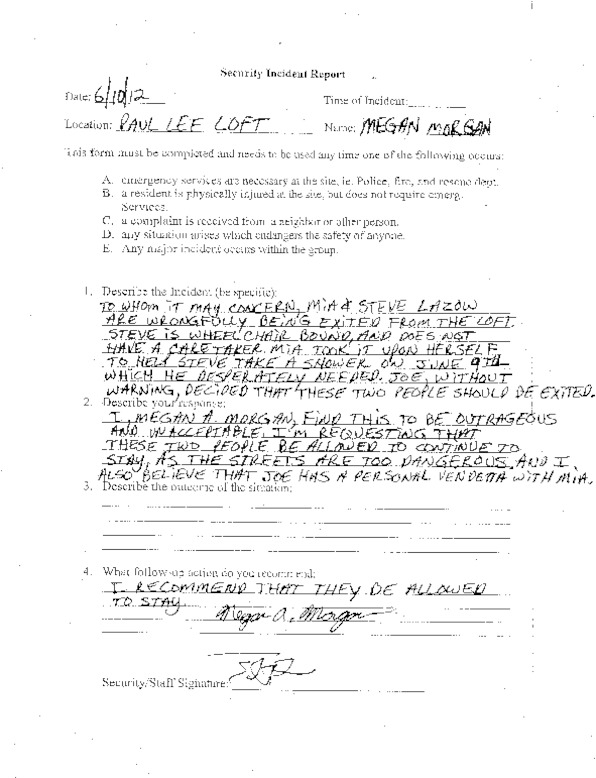 Security Incident Report
Date: 6/10/12 Time of Incident:
Location: PAUL LEE LOFT Name: MEGAN MORGAN
This form must be completed and needs to be used any time one of the following occurs:
A. emergency services are necessary at the site, ie. Police, fire, and rescue dept.
B. a resident is physically injured at the site, but does not require emerg.
Services.
C. a complaint is received from a neighbor or other person.
D. any situation arises which endangers the safety of anyone.
E. Any major incident occurs within the group.
1. Describe the Incident (be specific):
TO WHOM IT MAY CONCERN, MIA & STEVE LAZOW
ARE WRONGFULLY BEING EXITED FROM THE LOFT.
STEVE IS WHEELCHAIR BOUND, AND DOES NOT
HAVE A CARETAKER. MIA TOOK IT UPON HERSELF
TO HELP STEVE TAKE A SHOWER ON JUNE 9TH
WHICH HE DESPERATELY NEEDED. JOE, WITHOUT
WARNING, DECIDED THAT THESE TWO PEOPLE SHOULD BE EXITED.
2. Describe your response:
I, MEGAN A. MORGAN, FIND THIS TO BE OUTRAGEOUS
AND UNACCEPTABLE. I'M REQUESTING THAT
THESE TWO PEOPLE BE ALLOWED TO CONTINUE TO
STAY, AS THE STREETS ARE TOO DANGEROUS, AND I
ALSO BELIEVE THAT JOE HAS A PERSONAL VENDETTA WITH MIA.
3. Describe the outcome of the situation:
4. What follow-up action do you recommend:
I RECOMMEND THAT THEY BE ALLOWED
TO STAY. Megan A. Morgan
Security/Staff Signature: